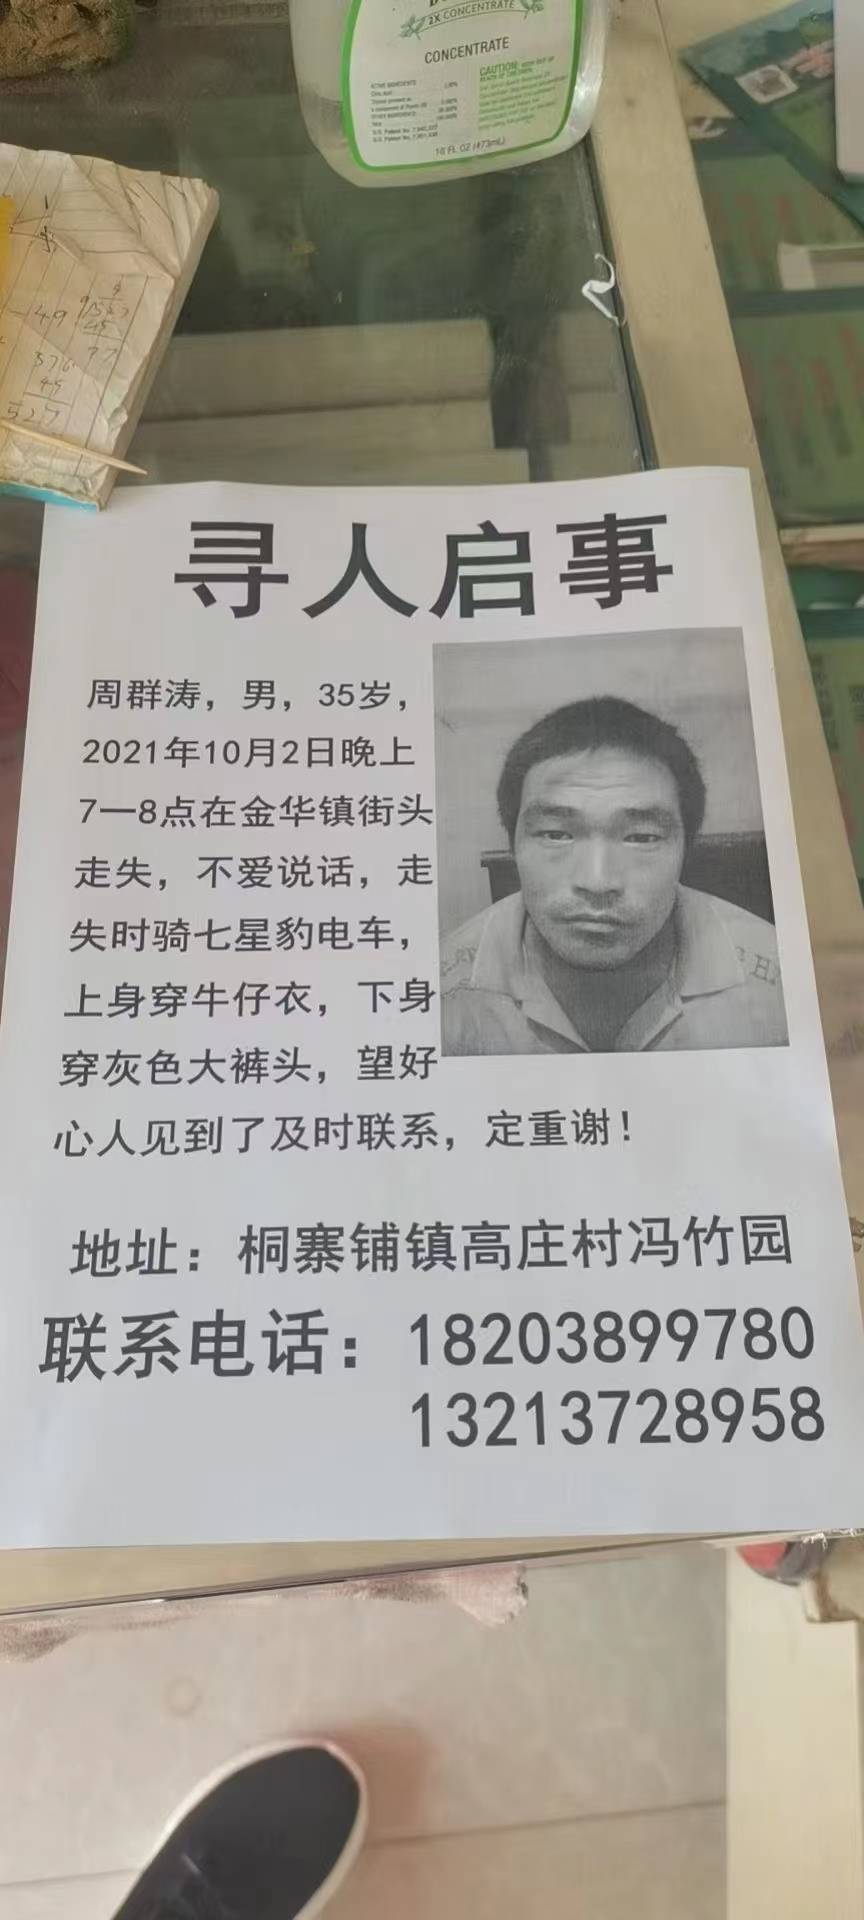 2X CONCENTRATE
CONCENTRATE
CAUTION:
16 FL OZ (473mL)
寻人启事
周群涛，男，35岁，
2021年10月2日晚上
7—8点在金华镇街头
走失，不爱说话，走
失时骑七星豹电车，
上身穿牛仔衣，下身
穿灰色大裤头，望好
心人见到了及时联系，定重谢！
地址：桐寨铺镇高庄村冯竹园
联系电话：18203899780
13213728958